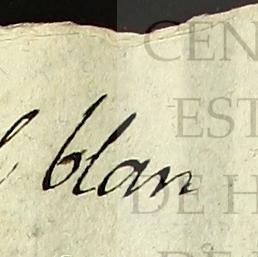 blan
CEN
EST
DE H